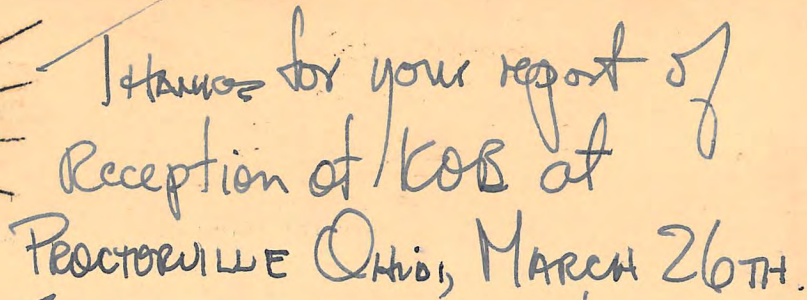 Thanks for your report of
Reception of KOB at
PROCTORVILLE OHIO, MARCH 26TH.